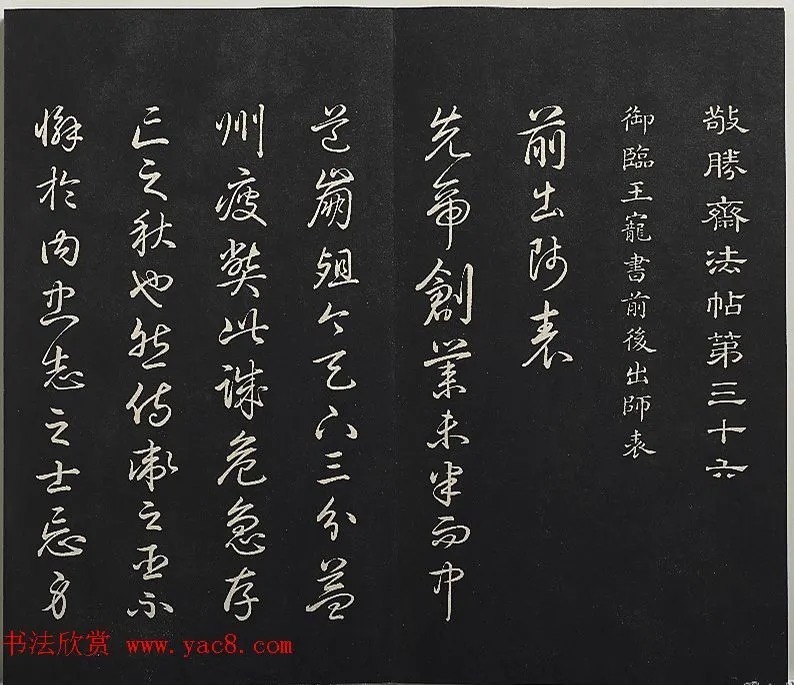 敬勝齋法帖第三十六
御臨王寵書前後出師表
前出師表
先帝創業未半而中
道崩殂今天下三分益
州疲弊此誠危急存
亡之秋也然侍衛之臣不
懈於內忠志之士忘身
书法欣赏 www.yac8.com